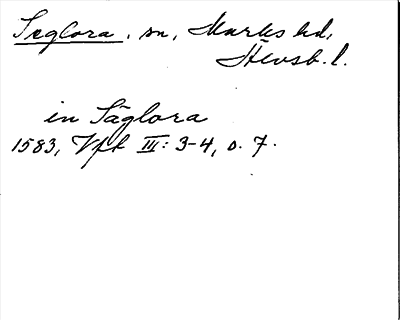 Sæglora, sn, Marks hd,
Älvsb. l.
in Säglora
1583, Vfb III: 3-4, o. 7.